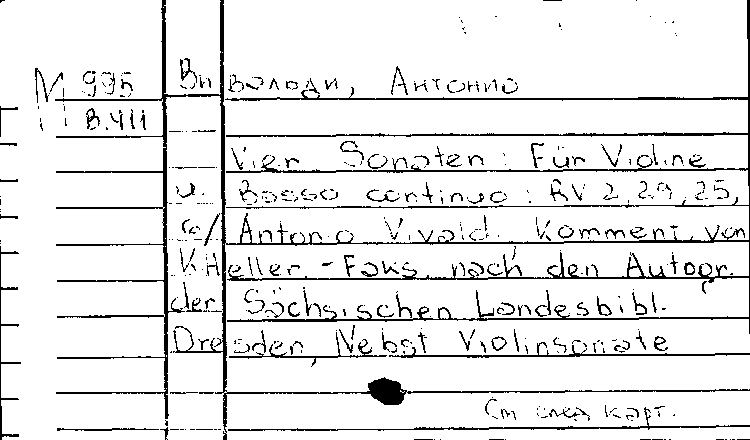 М 995 Ви вальди, Антонио
В.411
Vier Sonaten : Für Violine
u. Basso continuo : RV 2, 29, 25,
Antonio Vivald. Komment. von
K.Heller. - Faks. nach den Autogr.
der Sächsischen Landesbibl.
Dresden, Nebst Violinsonate
См след карт.